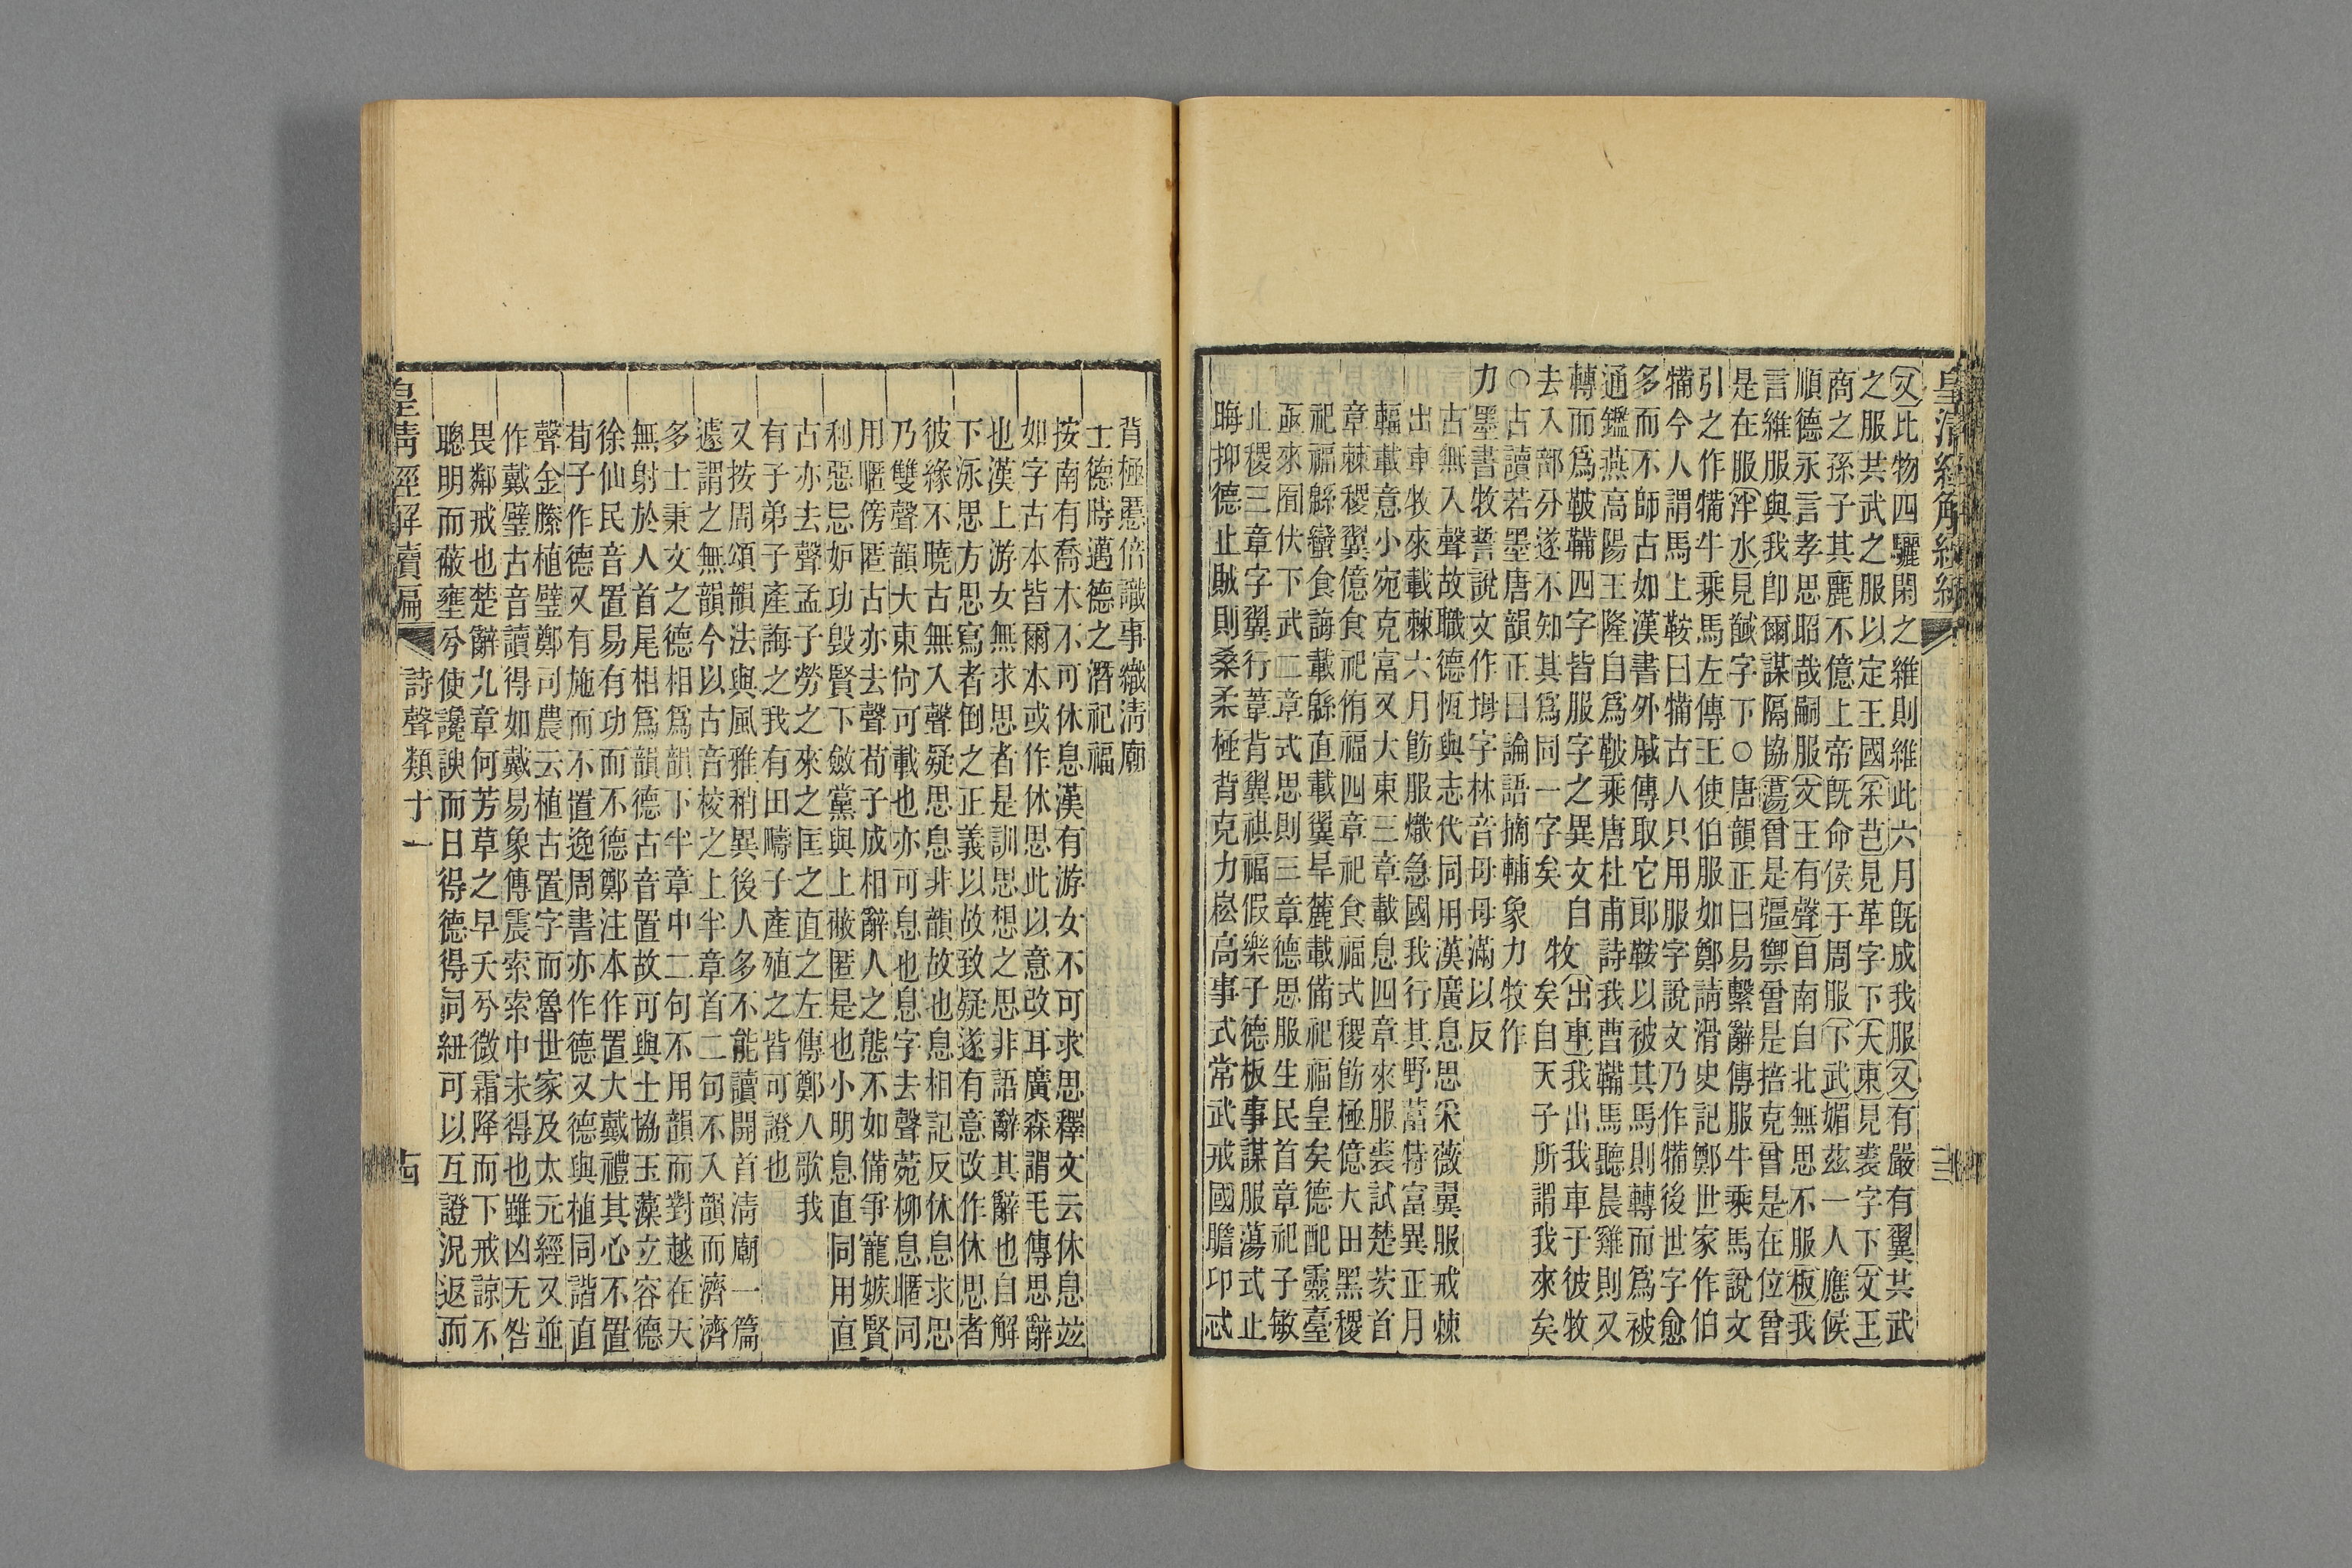 皇清經解續編
十三
又此物四驪閑之維則維此六月旣成我服又有嚴有翼共武
之服共武之服以定王國采芑見革字下大東見裘字下文王
商之孫子其麗不億上帝旣命侯于周服下武媚茲一人應侯
順德永言孝思昭哉嗣服文王有聲自南自北無思不服板我
言維服與我卽爾謀隔協蕩曾是彊禦曾是掊克曾是在位曾
是在服泮水見馘字下○唐韻正曰易繫辭傳服牛乘馬說文
引之作犕牛乘馬左傳王使伯服如鄭請滑史記鄭世家作伯
犕今人謂馬上鞍曰犕古人只用服字說文乃作犕後世字愈
多而不師古如漢書外戚傳取它郞鞍以被其馬則轉而爲被
通鑑燕高陽王隆自爲鞁乘唐杜甫詩我曹鞴馬聽晨雞則又
轉而爲鞁鞴四字皆服字之異文自牧出車我出我車于彼牧
去入部分遂不知其爲同一字矣　矣自天子所謂我來矣
○古讀若墨唐韻正曰論語摘輔象力牧作
力墨書牧誓說文作坶字林音母母滿以反
古無入聲故職德恆與志代同用漢廣息思采薇翼服戒棘
出車牧來載棘六月飭服熾急國我行其野葍特富異正月
輻載意小宛克富又大東三章載息四章來服裘試楚茨首
章棘稷翼億食祀侑福四章祀食福式稷飭極億大田黑稷
祀福緜蠻食誨載緜直載翼旱麓載備祀福皇矣德配靈臺
亟來囿伏下武二章式思則三章德思服生民首章祀子敏
止稷三章字翼行葦背翼祺福假樂子德板事謀服蕩式止
晦抑德止賊則桑柔極背克力崧高事式常武戒國瞻卬忒
背極慝倍識事織淸廟
士德時邁德之潛祀福
按南有喬木不可休息漢有游女不可求思釋文云休息竝
如字古本皆爾本或作休思此以意改耳廣森謂毛傳思辭
也漢上游女無求思者是訓思想之思非語辭其辭也自解
下泳思方思寫者倒之正義以故致疑遂有意改作休思者
彼緣不曉古無入聲疑思息非韻故也息相記反休息求思
乃雙聲韻大東尙可載也亦可息也息字去聲菀柳息暱同
用暱傍匿古亦去聲荀子成相辭人之態不如備爭寵嫉賢
利惡忌妒功毀賢下斂黨與上蔽匿是也小明息直同用直
古亦去聲孟子勞之來之匡之直之左傳鄭人歌我
有子弟子產誨之我有田疇子產殖之皆可證也
又按周頌韻法與風雅稍異後人多不能讀開首淸廟一篇
遽謂之無韻今以古音校之上半章首二句不入韻而濟濟
多士秉文之德相爲韻下半章中二句不用韻而對越在天
無射於人首尾相爲韻德古音置故可與士協玉藻立容德
徐仙民音置易有功而不德鄭注本作置大戴禮其心不置
荀子作德又有施而不置逸周書亦作德又德與植同諧直
聲金縢植璧鄭司農云植古置字而魯世家及太元經又竝
作戴璧古音讀得如戴易象傳震索索中未得也雖凶无咎
畏鄰戒也楚辭九章何芳草之早夭兮微霜降而下戒諒不
聰明而蔽壅兮使讒諛而日得德得詞紐可以互證況返而
皇淸經解續編
詩聲類十一
十四